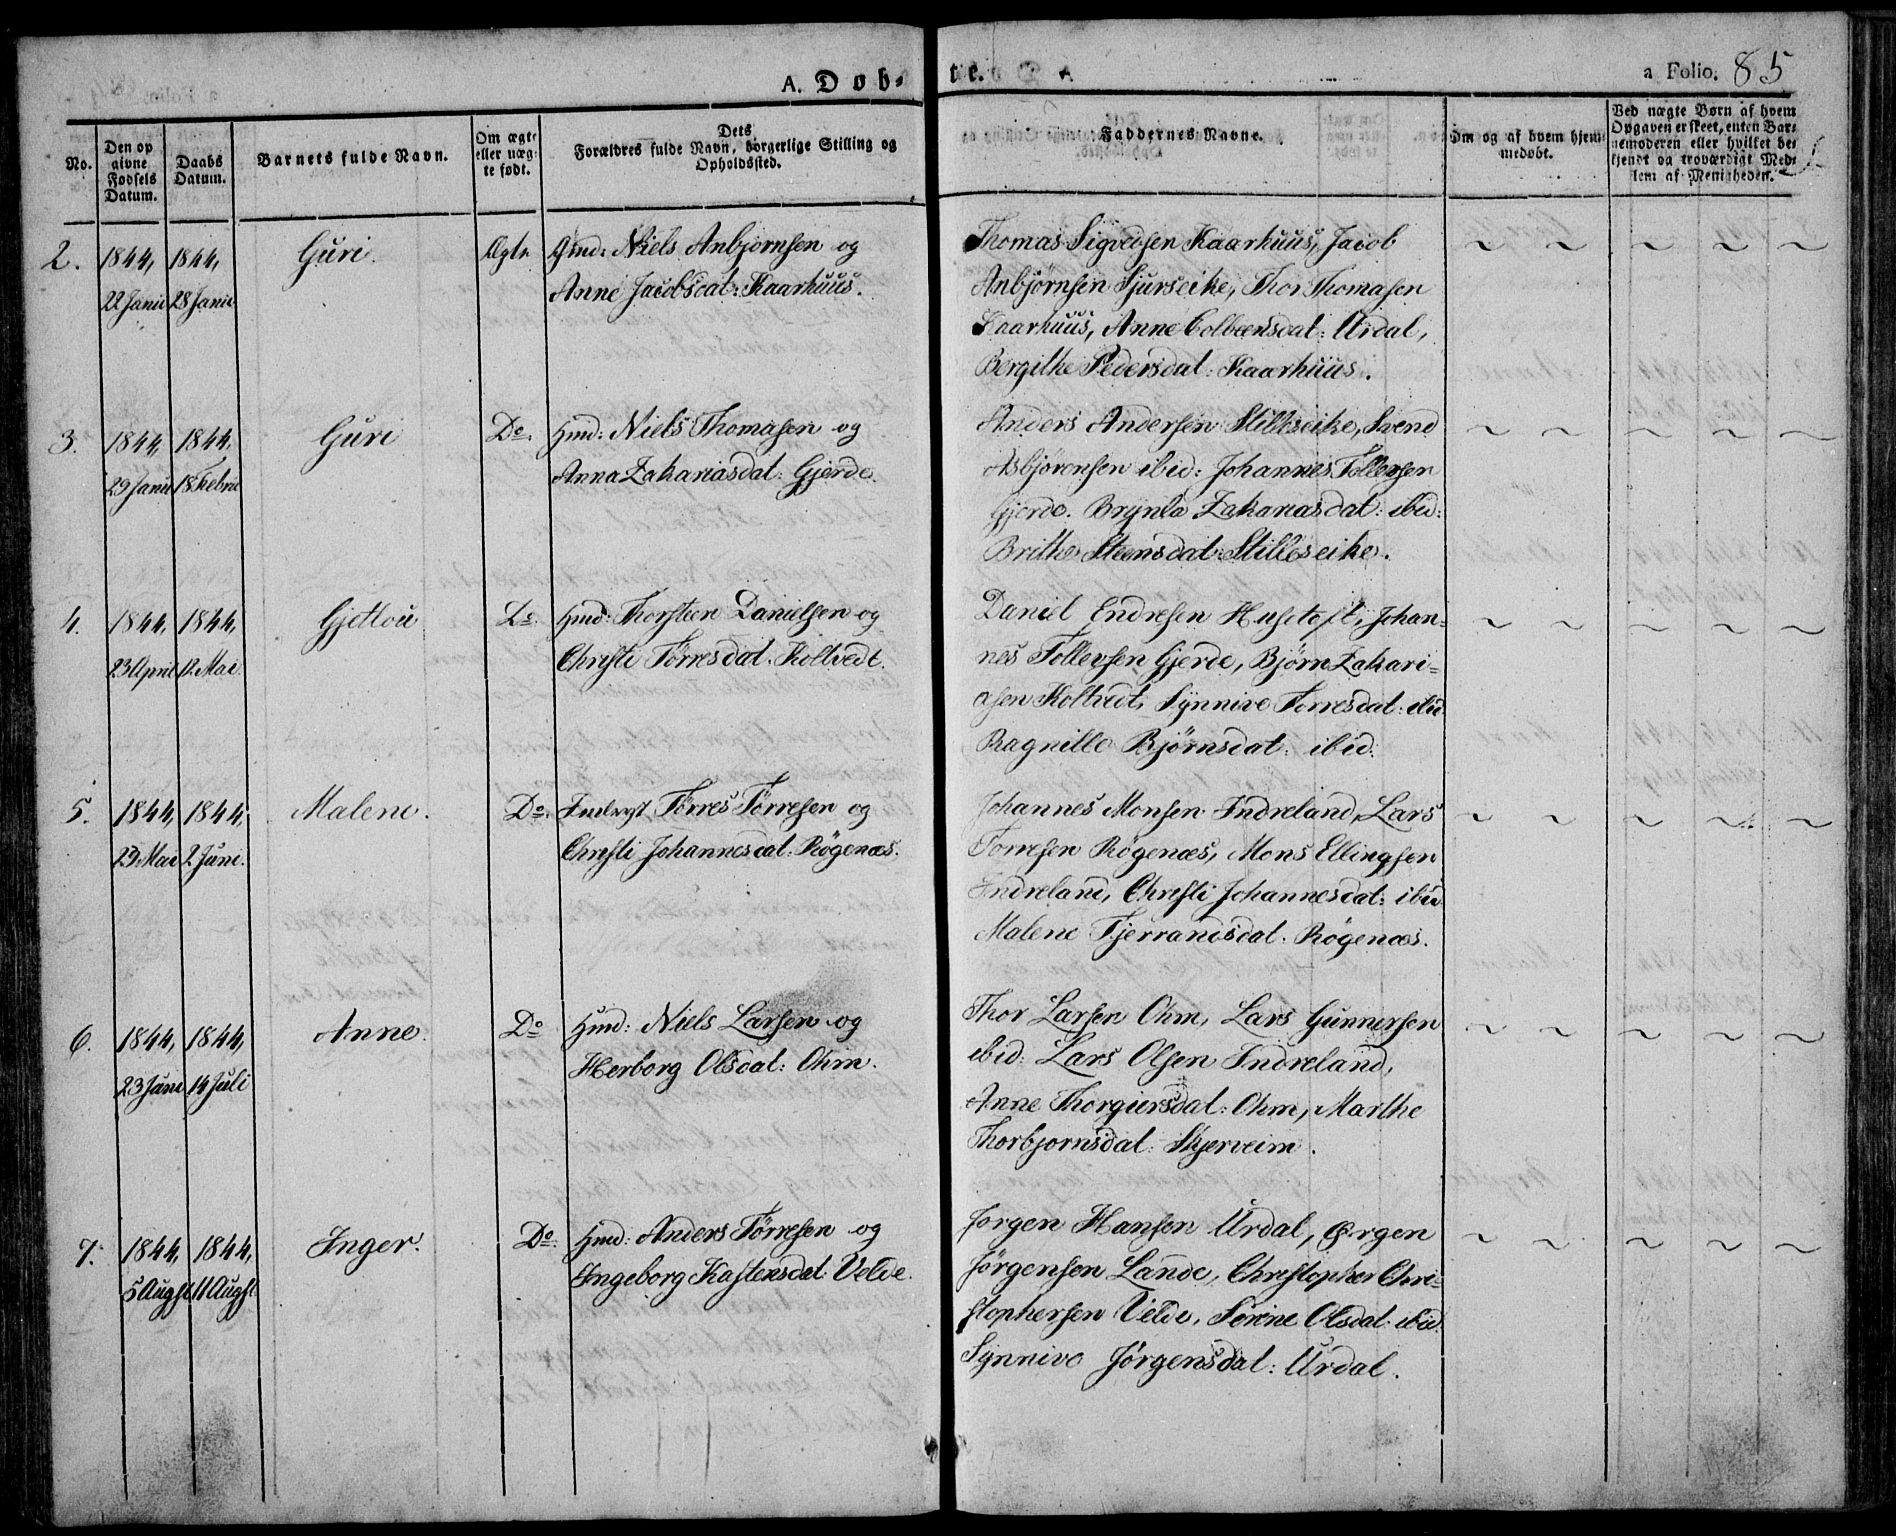 A. Dob-
te.
a Folio. 85
No.
Den op
givne
Fødsels
Datum.
Daabs
Datum.
Barnets fulde Navn.
Om ægte
eller uæg-
te født.
Dets
Forældres fulde Navn, borgerlige Stilling og
Opholdssted.
Faddernes Navne.
Om og af hvem hjem-
medøbt.
Ved uægte Børn af hvem
Opgaven er skeet, enten Bar-
nemoderen eller hvilket be-
kjendt og troværdigt Med-
lem af Menigheden.
2. 1844, 1844, Guri. Ægte Gmd: Niels Anbjørnsen og
22 Janu 28 Janu Anne Jacobsdat: Kaarhuus.
Thomas Sigvedsen Kaarhuus, Jacob
Anbjørnsen Sjurseike, Thor Thomasen
Kaarhuus, Anne Colbensdat: Urdal,
Bergithe Pedersdat: Kaarhuus.
3. 1844, 1844, Guri Do. Hmd: Niels Thomasen og
29 Janu 18 Febru Anna Zakariasdat: Gjerde.
Anders Andersen Stilleseike, Svend
Asbjørensen ibid: Johannes Tollevsen
Gjerde. Brynla Zakariasdat: ibid:
Brithe Steensdat: Stilleseike.
4. 1844, 1844, Gjetlou Do. Hmd: Thorsteen Danielsen og
23 April 12 Mai Christi Tørresdat. Koltvedt.
Daniel Endresen Husetoft, Johan-
nes Tollevsen Gjerde, Bjørn Zakari-
asen Koltvedt, Synnive Torresdat: ibid
Ragnille Bjørnsdat: ibid.
5. 1844, 1844, Malene. Do. Inderst Tørres Tørresen og
29 Mai 2 Juni. Christi Johannesdat: Røgenæs.
Johannes Monsen Indreland, Lars
Torresen Røgenæs, Mons Ellingsen
Indreland, Christi Johannesdat: ibid
Malene Tjerrandsdat. Røgenæs.
6. 1844, 1844, Anne. Do Hmd: Niels Larsen og
23 Juni 14 Juli Herborg Olsdat: Ohm.
Thor Larsen Ohm, Lars Gunnersen
ibid: Lars Olsen Indreland,
Anne Thorgiersdat: Ohm, Marthe
Thorbjornsdat: Skjerveim.
7. 1844, 1844, Inger. Do. Hmd: Anders Tørresen og
5 Augst 11 Augst Ingeborg Kastensdat: Velde.
Jorgen Hansen Urdal, Ørgen
Jørgensen Lande, Christopher Chri-
stophersen Velde, Sørine Olsdat: ibid.
Synnive Jørgensdal: Urdal.